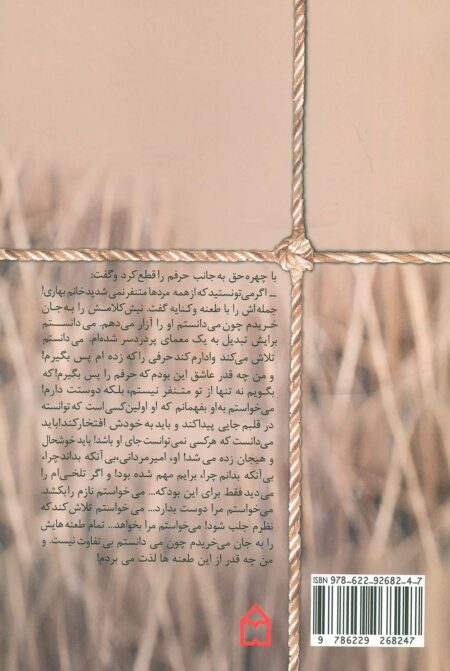 با چهره حق به جانب حرفم را قطع کرد و گفت:
ـ اگر می‌تونستید که از همه مردها متنفر نمی شدید خانم بهاری!
جمله‌اش را با طعنه و کنایه گفت. نیش کلامش را به جان
خریدم چون می‌دانستم او را آزار می‌دهم. می دانستم
برایش تبدیل به یک معمای پردردسر شده‌ام. می دانستم
تلاش می‌کند وادارم کند حرفی را که زده ام پس بگیرم!
و من چه قدر عاشق این بودم که حرفم را پس بگیرم! که
بگویم نه تنها از تو متنفر نیستم، بلکه دوستت دارم!
می‌خواستم به او بفهمانم که او اولین کسی است که توانسته
در قلبم جایی پیدا کند و باید به خودش افتخار کند! باید
می‌دانست که هرکسی نمی‌توانست جای او باشد! باید خوشحال
و هیجان زده می شد! او، امیر مردانی، بی آنکه بداند چرا،
بی‌آنکه بدانم چرا، برایم مهم شده بود! و اگر تلخی‌ام را
می‌دید فقط برای این بود که... می‌خواستم نازم را بکشد.
می‌خواستم مرا دوست بدارد... می‌خواستم تلاش کند که
نظرم جلب شود! می‌خواستم مرا بخواهد... تمام طعنه هایش
را به جان می‌خریدم چون می دانستم بی تفاوت نیست. و
من چه قدر از این طعنه ها لذت می بردم!
ISBN 978-622-92682-4-7
9 786229 268247